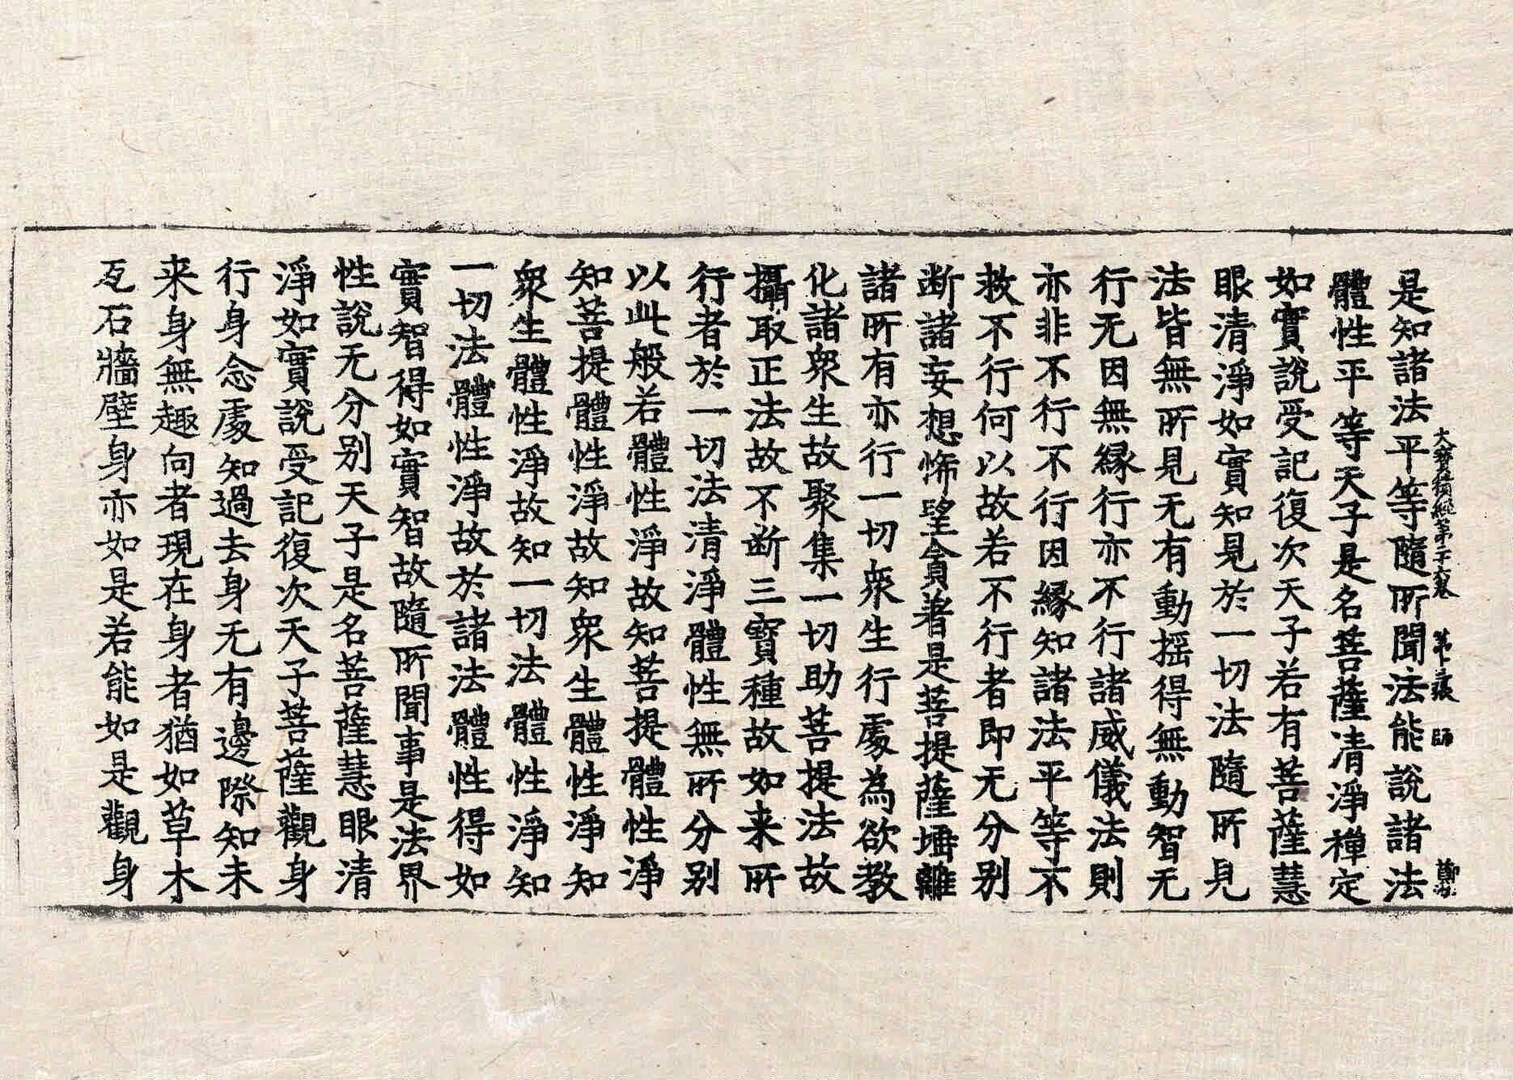 是知諸法平等隨所聞法能說諸法
大寶積經第二十六卷　第十三張　師
體性平等天子是名菩薩清淨禪定
如實說受記復次天子若有菩薩慧
眼清淨如實知見於一切法隨所見
法皆無所見无有動揺得無動智无
行无因無縁行亦不行諸威儀法則
亦非不行不行因縁知諸法平等不
救不行何以故若不行者即无分别
断諸妄想悕望貪著是菩提薩埵離
諸所有亦行一切衆生行處為欲教
化諸衆生故聚集一切助菩提法故
攝取正法故不断三寳種故如来所
行者於一切法清淨體性無所分别
以此般若體性淨故知菩提體性淨
知菩提體性淨故知衆生體性淨知
衆生體性淨故知一切法體性淨知
一切法體性淨故於諸法體性得如
實智得如實智故隨所聞事是法界
性說无分别天子是名菩薩慧眼清
淨如實說受記復次天子菩薩觀身
行身念處知過去身无有邊際知未
来身無趣向者現在身者猶如草木
瓦石牆壁身亦如是若能如是觀身